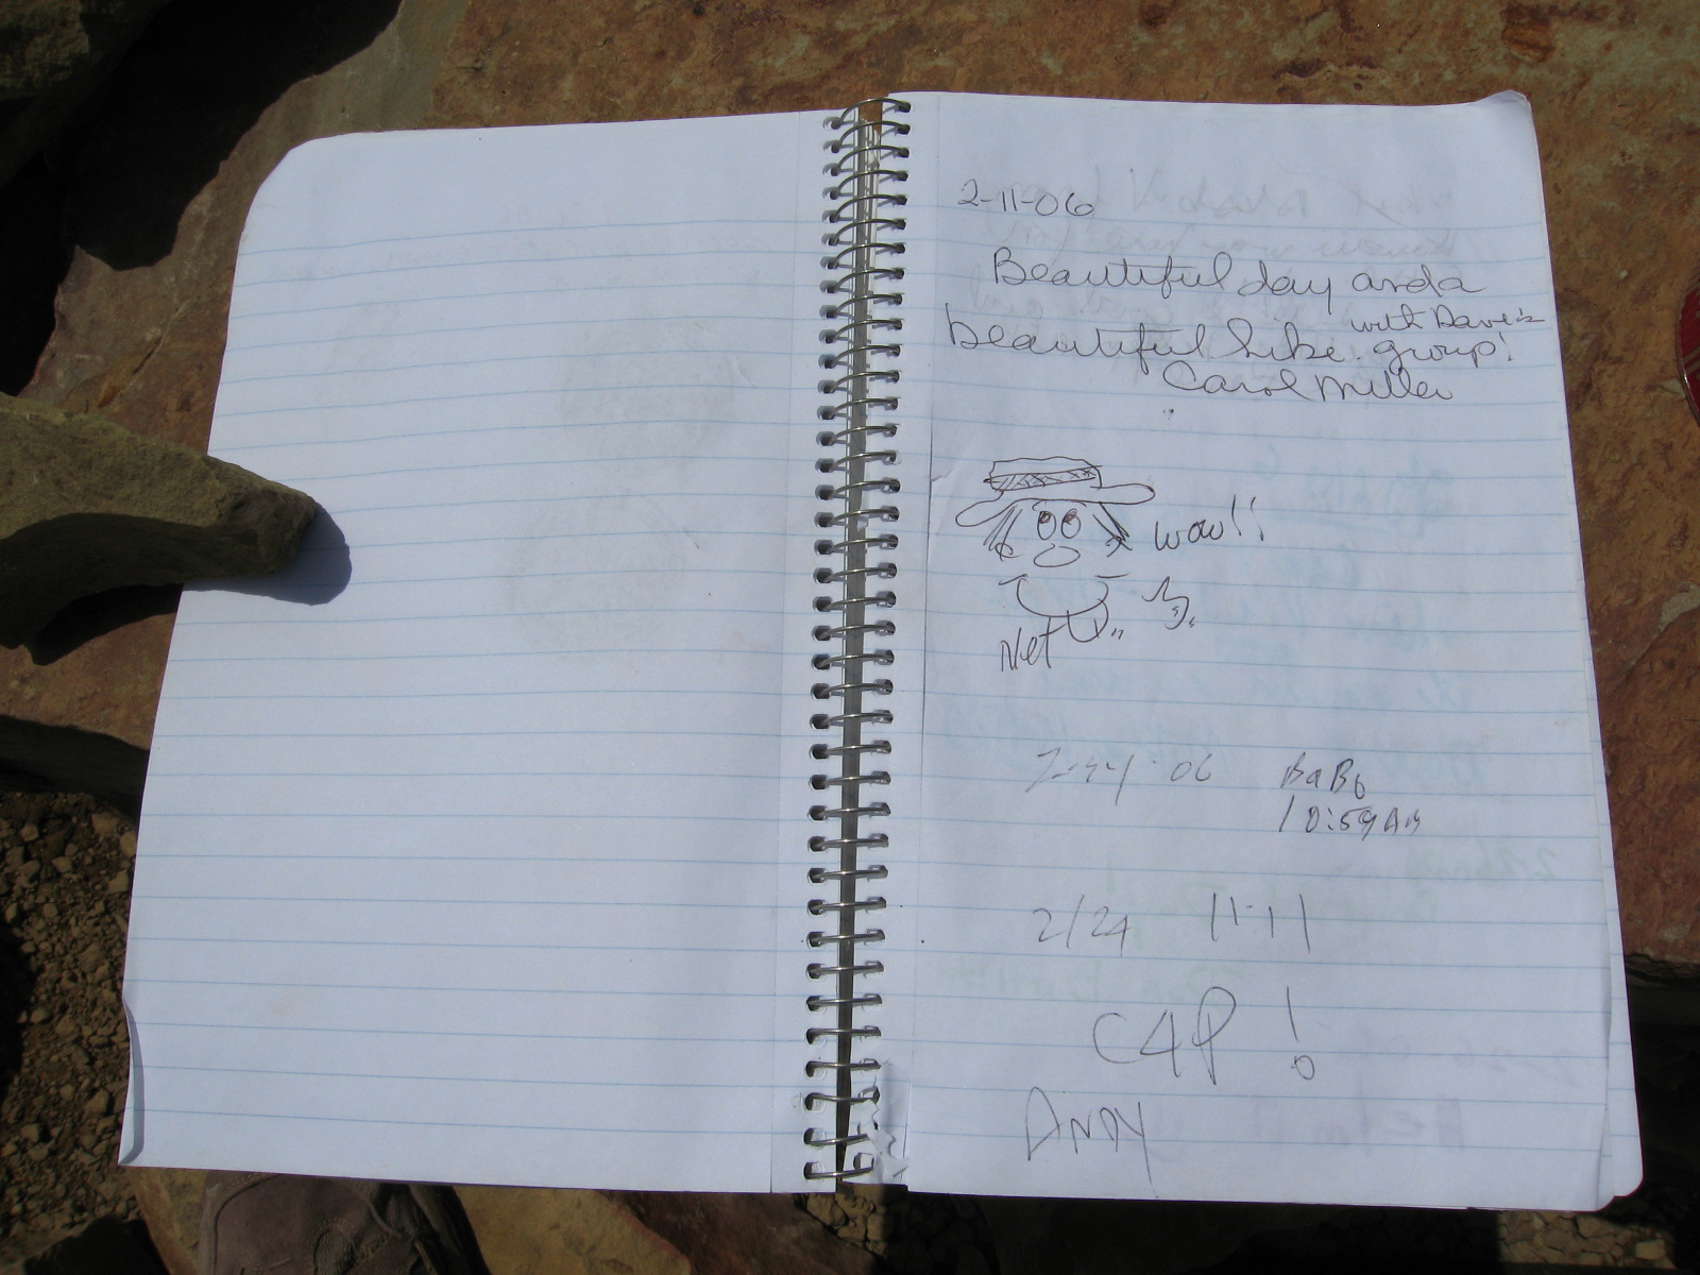 2-11-06
Beautiful day and a
beautiful hike with Dave's
group!
Carol Miller
wow!!
10:59 AM
2/24 11:11
C4P!
ANDY